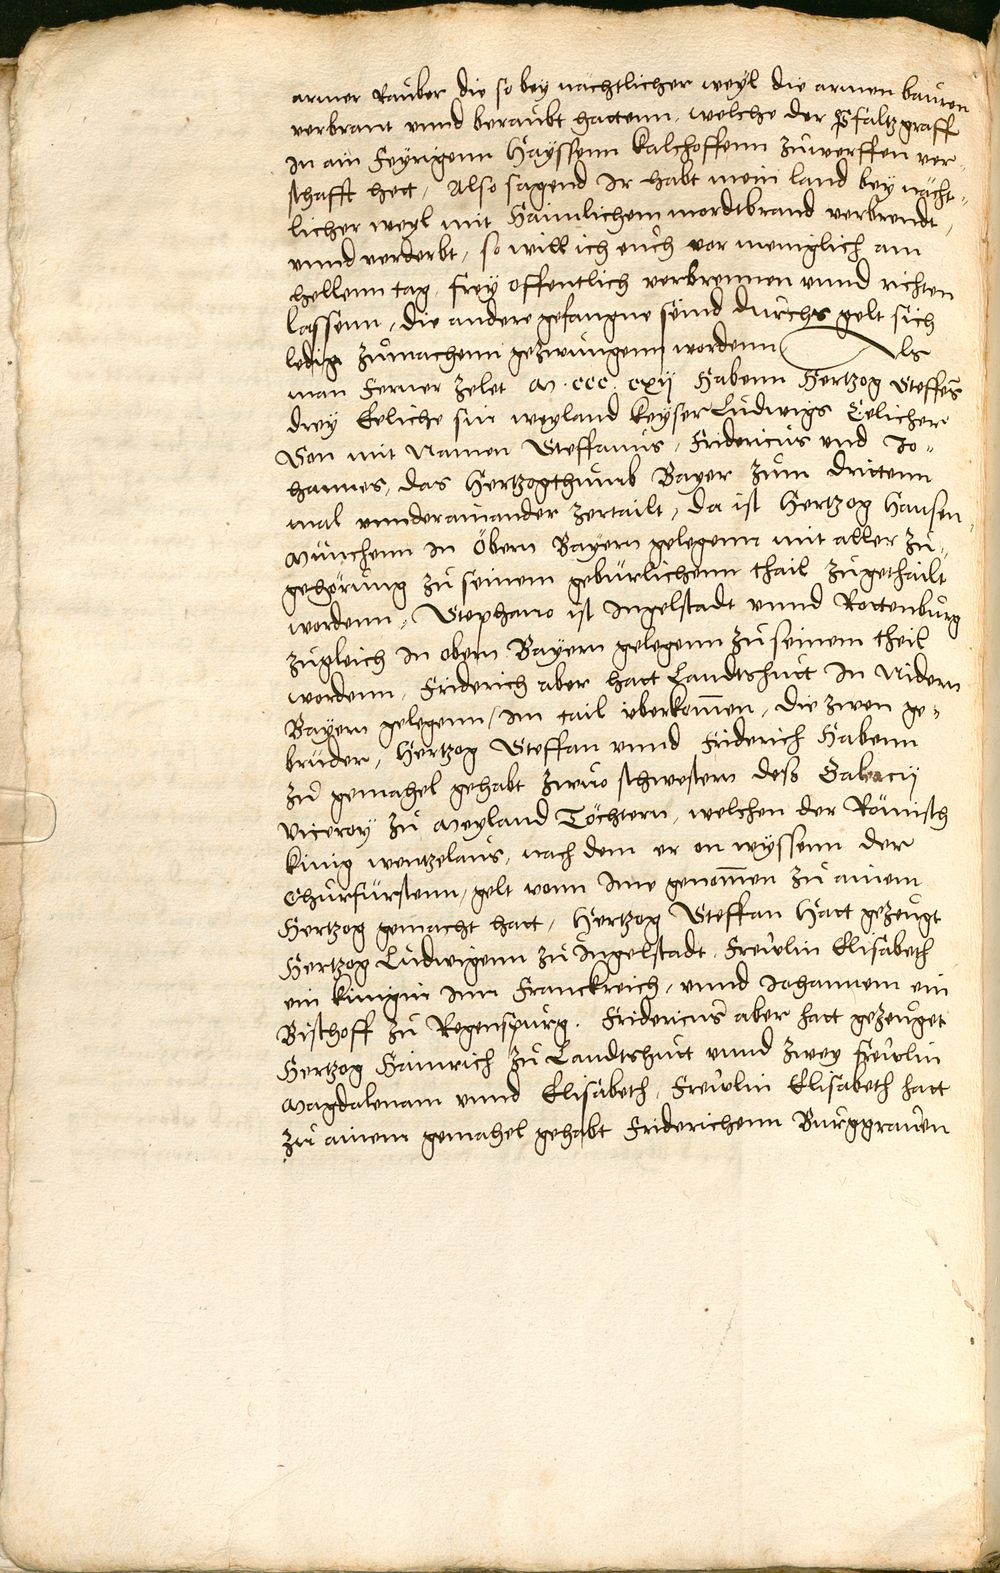 armer Rauber die so bey nächtlicher weyl die armen bauren
verbrant vnnd beraubt hattenn, welche der Pfaltzgraff
in ain Feyrigenn Hayssenn kalchoffenn zuwerffen ver-
schafft hett, Also sagend Ir habt mein land bey nächt-
licher weyl mit Haimlichem mordtbrand verbrendt,
vnnd verderbt, so will ich euch vor meniglich am
hellenn tag, frey offentlich verbrennen vnnd richten
lassenn, die andere gefangne seind durchs gelt sich
ledig zumachenn gezwungenn wordenn Als
man Ferner zelet M.ccc.cxij Habenn Hertzog Steffes
drey Eeliche sin weyland keyser Ludwigs Eelicher
Son mit Namen Steffanus, Fridericus vnd Jo-
hannes, das Hertzogthumb Bayer zum drittenn
mal vnnderainander zertailt, da ist Hertzog Hansen,
Münchenn in Obern Bayern gelegenn mit aller zu-
gehörung zu seinem gebürlichenn thail zugethailt
wordenn, Stephano ist Ingelstadt vnnd Rottenburg
zugleich in obern Bayern gelegenn zu seinem theil
wordenn, Friderich aber hatt Landtshutt in Nidern
Bayern gelegenn, im tail vberkomen, Die zwen ge-
brüder, Hertzog Steffan vnnd Friderich Habenn
zu gemahel gehabt zwuo schwestern dess Galeacij
Viceroy zu Meyland Töchtern, welchen der Römisch
König wentzelaus, nach dem er on wyssenn der
Churfürstenn, gelt vonn Ime genomen zu ainem
Hertzog gemacht hatt, Hertzog Steffan Hatt gezeugt
Hertzog Ludwigenn zu Ingelstadt, Frewlin Elisabeth
ein kinigin Inn Franckreich, vnnd Johannem ein
Bischoff zu Regenspurg. Fridericus aber hatt gezeuget
Hertzog Hainrich zu Landtshutt vnnd zwey frewlin
Magdalenam vnnd Elisabeth, Frewlin Elisabeth hatt
zu ainem gemahel gehabt Friderichenn Burggrauen